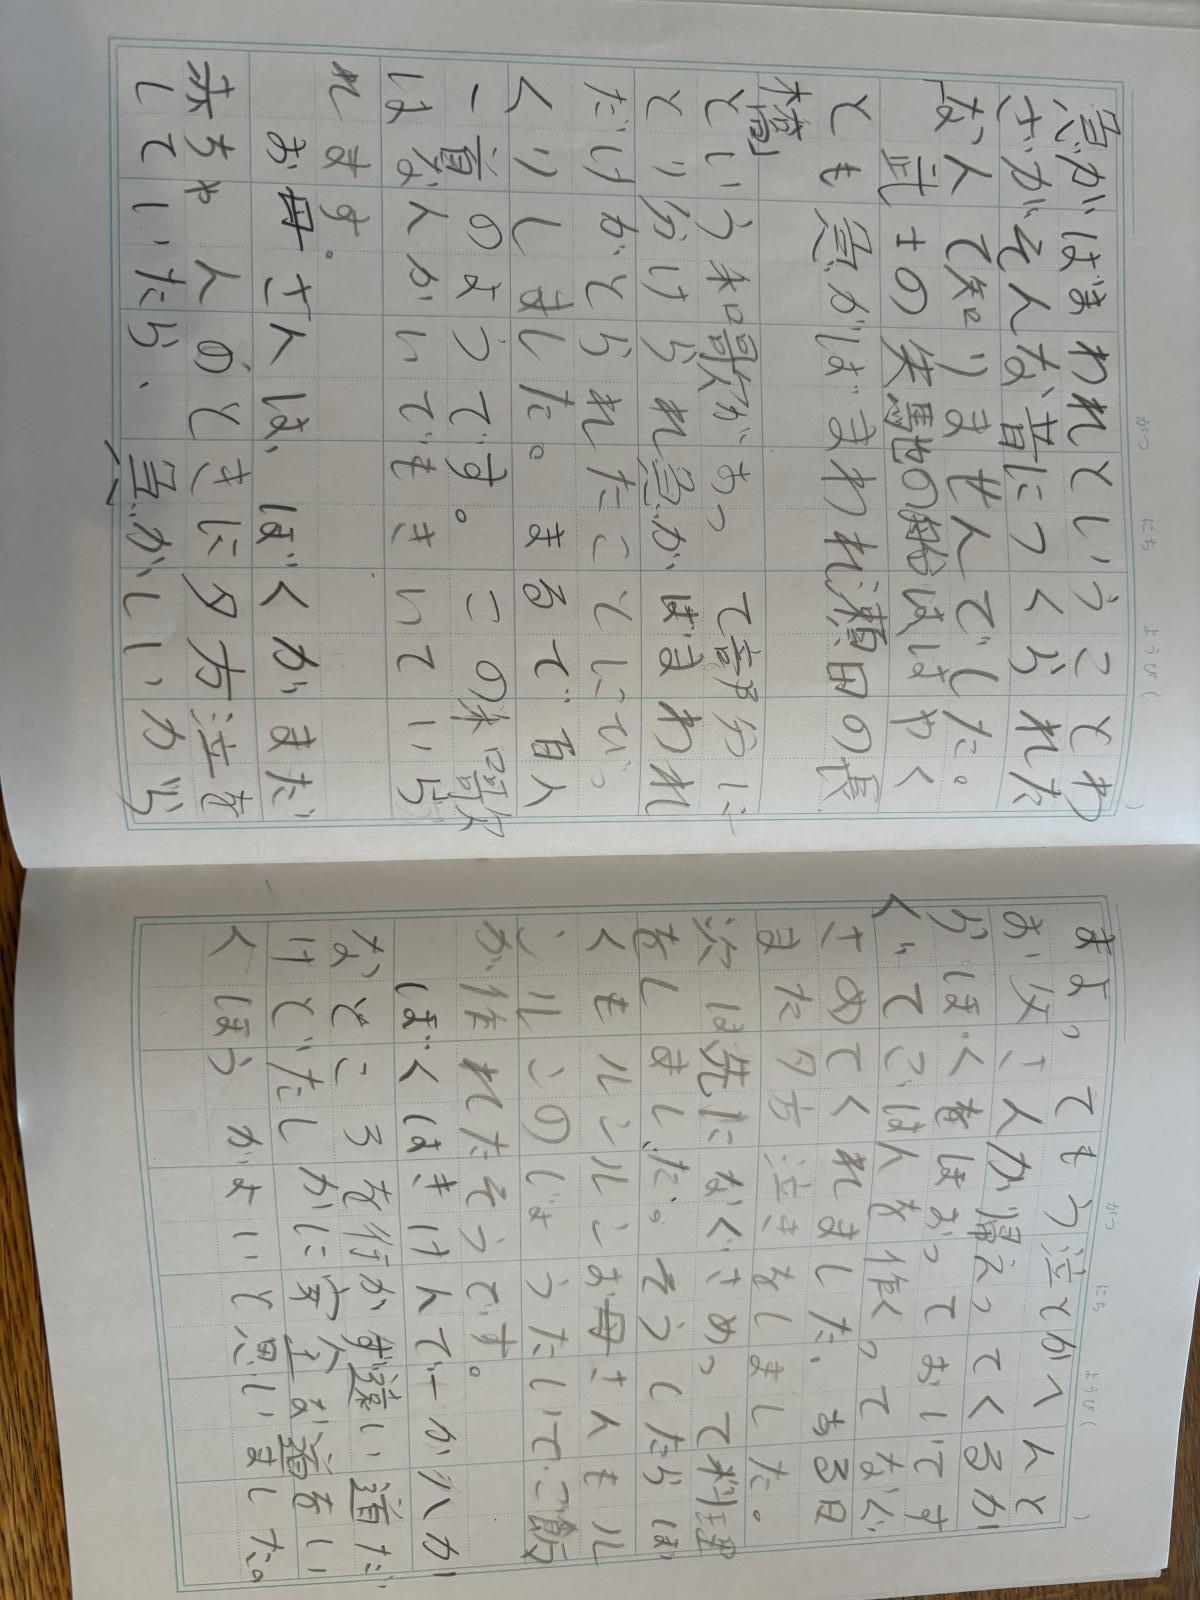 がつ にち ようび( )
急がばまわれということわ
ざがそんな昔につくられた
なんて知りませんでした。
「武士の矢馳の船ははやく
とも急がばまわれ瀬田の長
橋」
という和歌があって部分に
とり分けられ急がばまわれ
だけがとられたことにびっ
くりしました。まるで百人
一首のようです。この和歌
はなんかいでもきいていら
れます。
お母さんは、ぼくがまだ
赤ちゃんのときに夕方泣を
していたら、急がしいから
がつ にち ようび( )
まよってもう泣とかへんと
お父さんが帰えってくるか
らぼくをほおっておいてす
ぐってごはんを作ってなぐ
さめてくれました、ある日
また夕方泣きをしました。
次は先になぐさめって料理
をしました。そうしたらぼ
くもルンルンお母さんもル
ンルンのじょうたいでご飯
が作れたそうです。
ぼくはきけんで一か八か
なところを行かず遠い道だ
けどたしかに安全な道をい
くほうがよいと思いました。